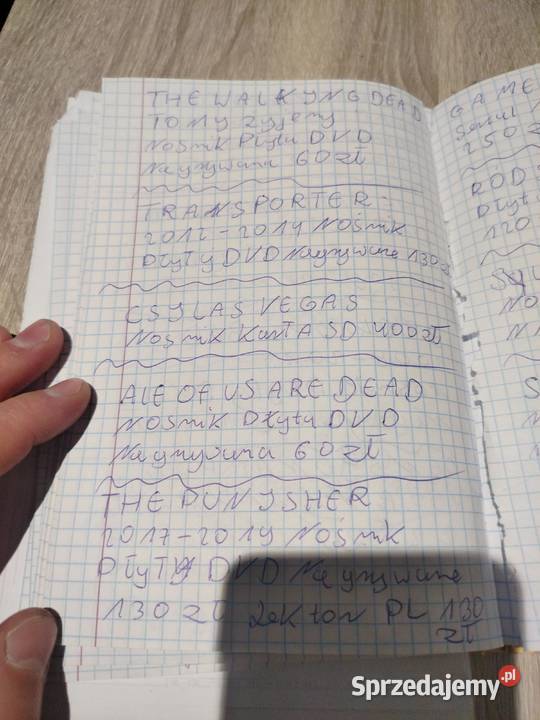 THE WALKYNG DEAD
TO MY Żyjemy
NOśnik Płyta DVD
Nagrywana 60 zł
TRANSPORTER
2012-2014 NOśnik
Płyty DVD Nagrywane 130 z
CSY LAS VEGAS
NOśnik Karta SD 400 zł
ALE OF US ARE DEAD
NOśnik Płyta DVD
Nagrywana 60 zł
THE PUNYSHER
2017-2019 NOśnik
Płyty DVD Nagrywane
130 zł Lektor PL 130
zł
GAME
Serial
250 z
ROD
Płyt
120
NO
N
S
Sprzedajemy.pl